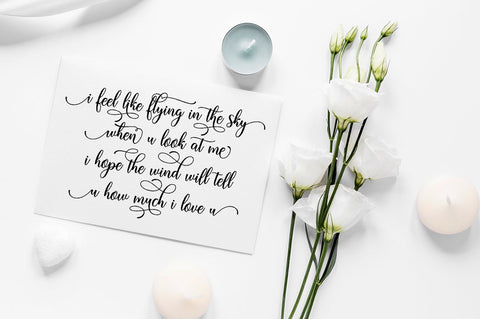 i feel like flying in the sky
when u look at me
i hope the wind will tell
u how much i love u